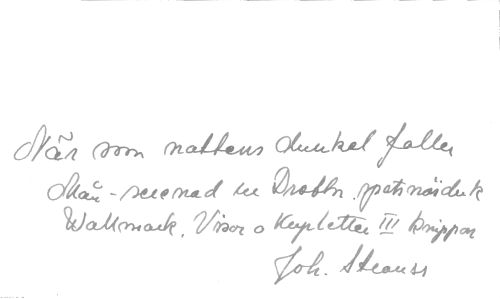 När som nattens dunkel faller
Mån-serenad ur Drottn.
Wallmark, Visor o Kupletter III knippan
Joh. Strauss